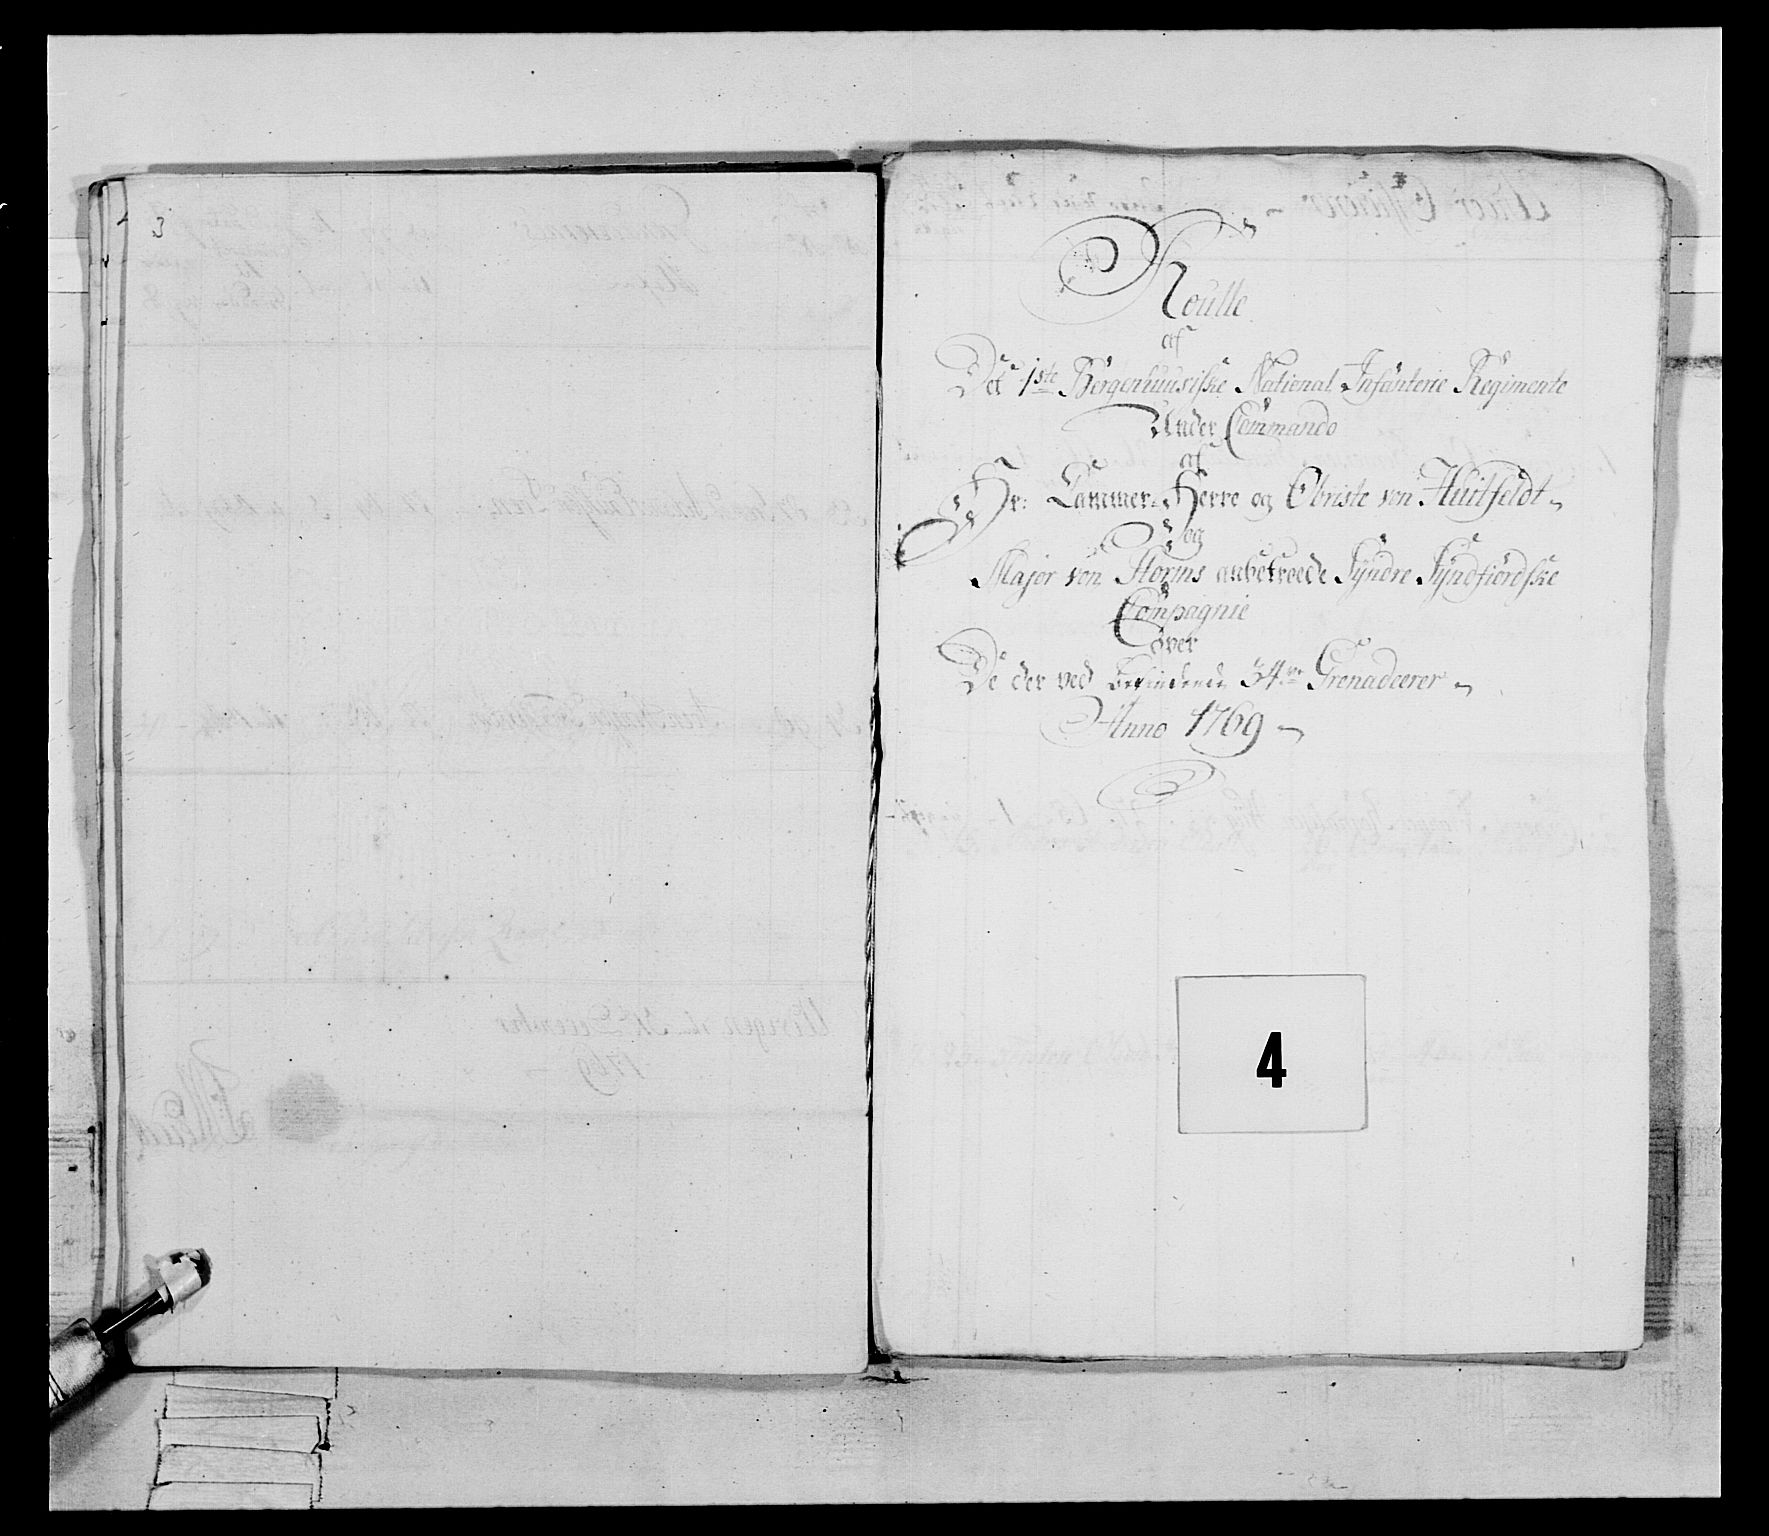 3
Roulle
af
Det 1ste Bergenhuusiske National Infanterie Regimente
Under Commando
af
Hr: Cammer-Herre og Obriste von Huitfeldt
og
Major von Storms anbetroede Syndre Syndfiordske
Compagnie
over
De der ved befindende 34re Grenadeerer
Anno 1769
4